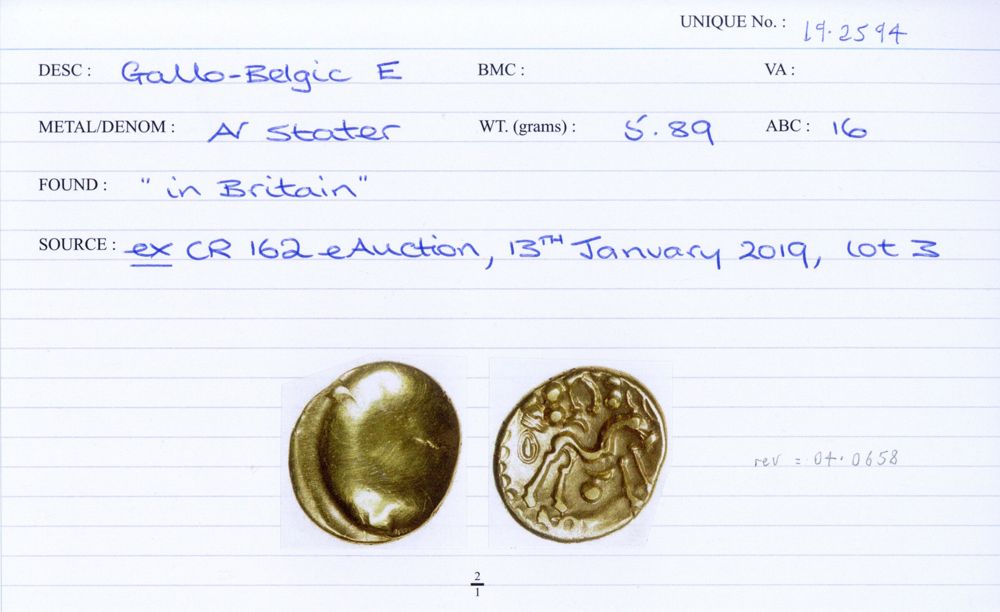 UNIQUE No. : 19.2594
DESC : Gallo-Belgic E BMC : VA :
METAL/DENOM : AV Stater WT. (grams) : 5.89 ABC : 16
FOUND : "in Britain"
SOURCE : ex CR 162 eAuction, 13TH January 2019, lot 3
rev = 04.0658
2
1